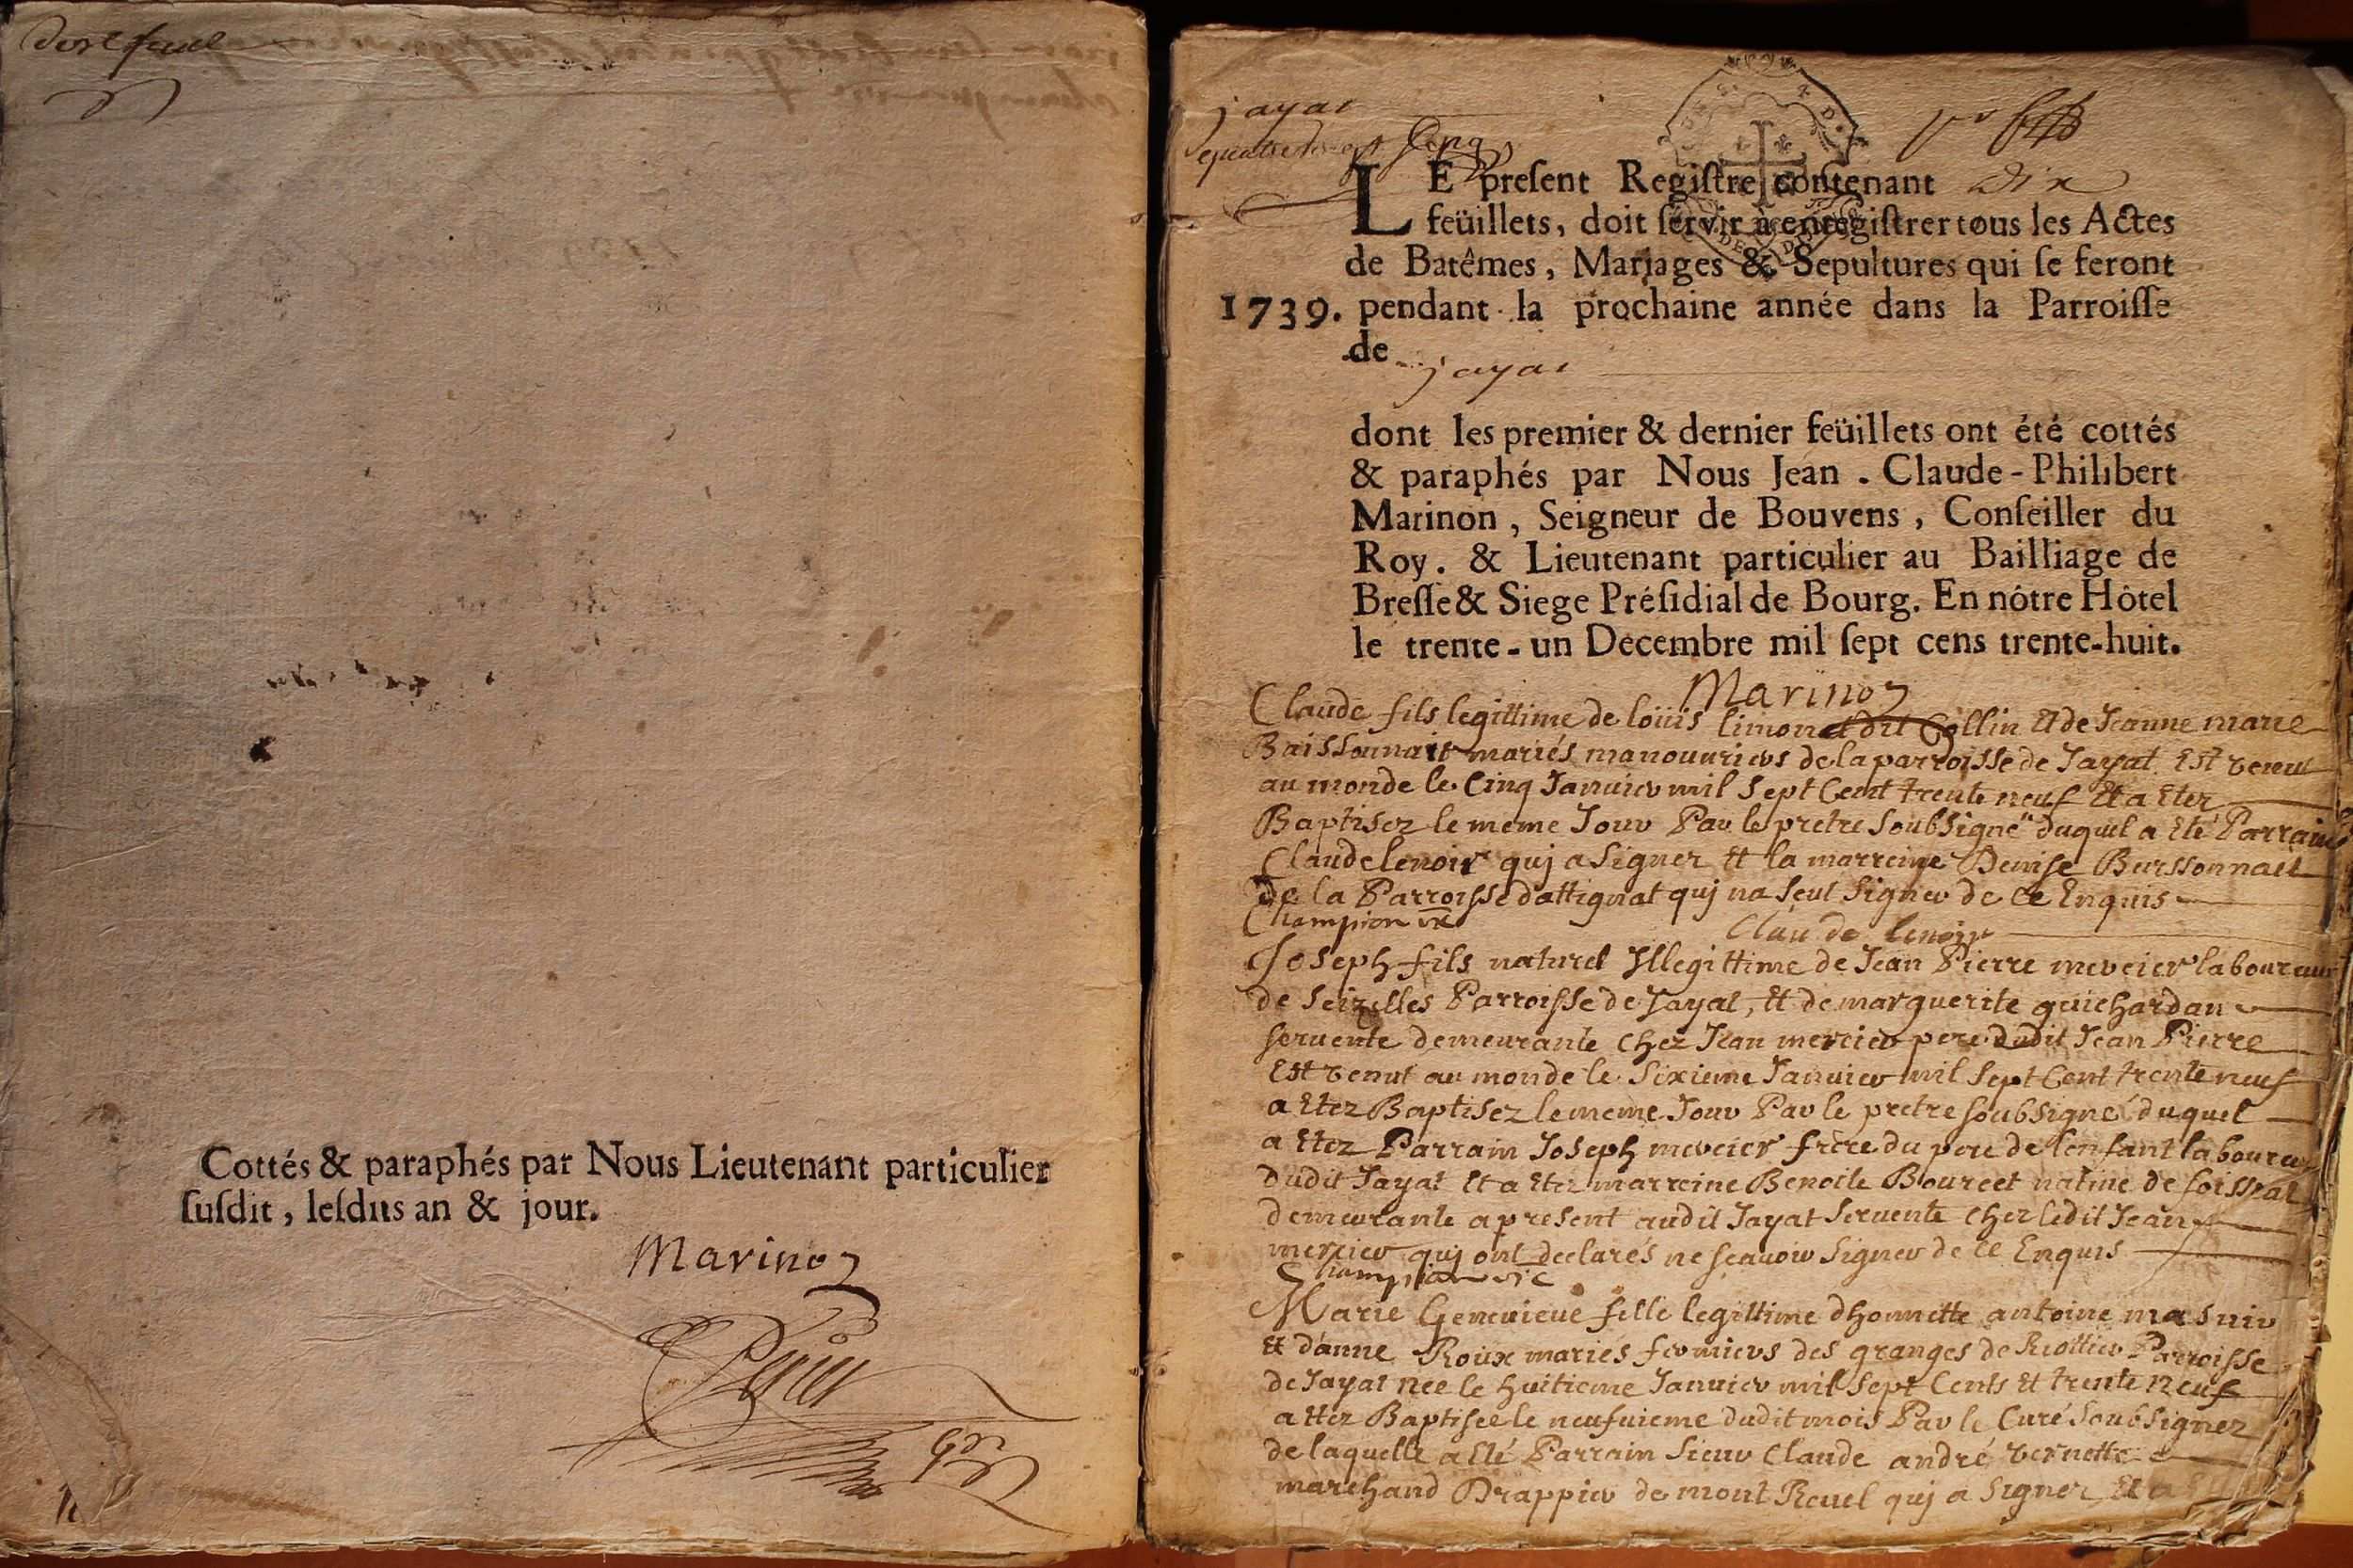 Cottés & paraphés par Nous Lieutenant particulier
ſuſdit, leſdits an & jour.
Marinon
jayat
quatre vingt Cinq
LE preſent Regiſtre contenant dix
feüillets, doit ſervir à enregiſtrer tous les Actes
de Batêmes, Mariages & Sepultures qui ſe feront
1739. pendant la prochaine année dans la Parroiſſe
de jayat
dont les premier & dernier feüillets ont été cottés
& paraphés par Nous Jean . Claude-Philibert
Marinon, Seigneur de Bouvens, Conſeiller du
Roy. & Lieutenant particulier au Bailliage de
Breſſe & Siege Préſidial de Bourg. En nôtre Hôtel
le trente-un Decembre mil ſept cens trente-huit.
Marinon
Claude fils legittime de loüis limonet dit Collin et de Jeanne marie
Baissonnait mariés manouuriers de la parroisse de Jayat Est venut
au monde le Cinq Januier mil Sept Cent trente neuf Et a Etez
Baptisez le meme Jour Par le pretre Soubsigné duquel a Eté Parrain
Claude lenoir quj a Signer Et la marreine Denise Burssonnait
De la Parroisse dattignat quj na Seut Signer de ce Enquis
Champion vic
Claude lenoir
Joseph fils naturel Yllegittime de Jean Pierre mercier laboureur
de Seizelles Parroisse de Jayat, Et de marguerite guichardan
seruente demeurante chez Jean mercier pere dudit Jean Pierre
Est venut au monde le Sixieme Januier mil Sept Cent trente neuf
a Etez Baptisez le meme Jour Par le pretre soubsigné duquel
a Etez Parrain Joseph mercier frere du pere de lenfant laboureur
dudit Jayat Et a Etez marreine Benoite Bourcet natiue de foissiat
demeurante a present audit Jayat Seruente chez ledit Jean
mercier quj ont declarés ne scauoir Signer de ce Enquis
Champion vic
Marie Geneuieue fille legittime dhonnette antoine masuir
Et d'anne Roux mariés fermiers des granges de Parroisse
de Jayat née le huitieme Januier mil Sept Cents Et trente neuf
a Etez Baptisée le neufuieme dudit mois Par le Curé Soubsignez
de laquelle a Eté Parrain Sieur Claude andré vernette
marchand Drappier de mont Reuel quj a Signer Et a